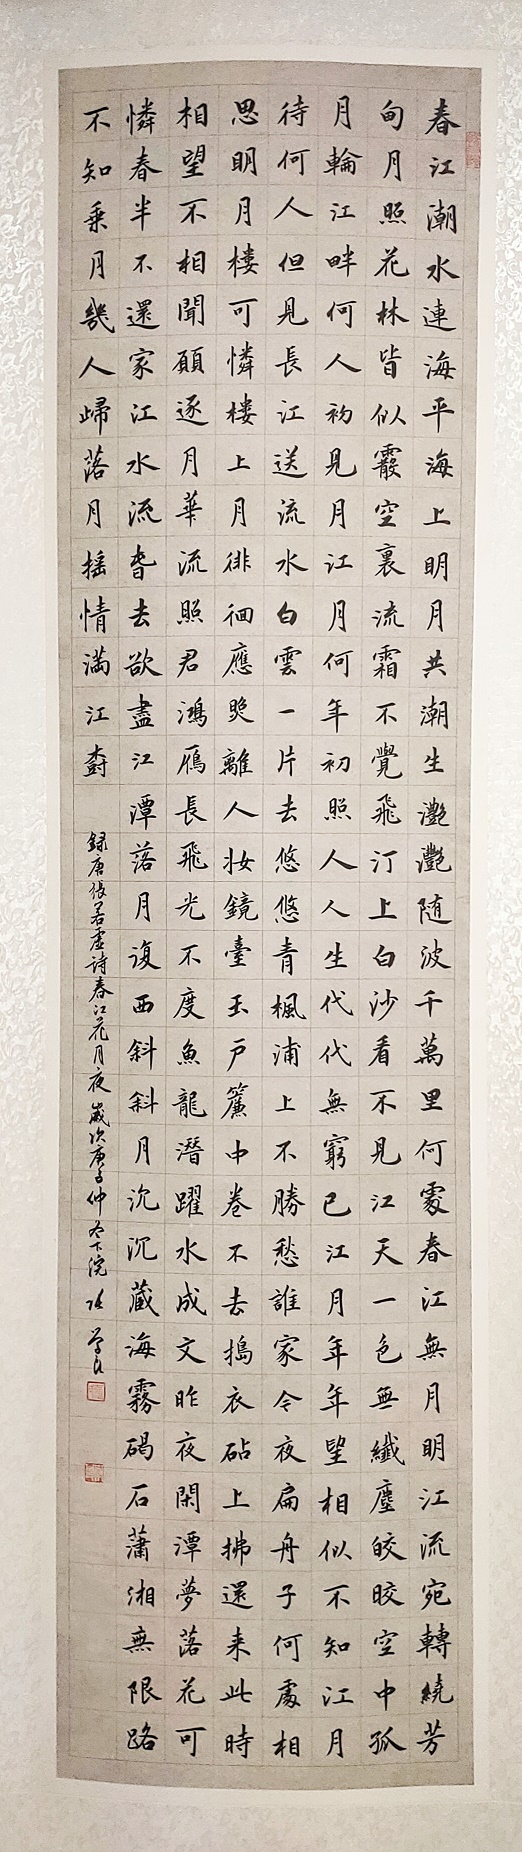 春江潮水連海平海上明月共潮生灩灩随波千萬里何處春江無月明江流宛轉繞芳
甸月照花林皆似霰空裏流霜不覺飛汀上白沙看不見江天一色無纖塵皎皎空中孤
月輪江畔何人初見月江月何年初照人人生代代無窮已江月年年望相似不知江月
待何人但見長江送流水白雲一片去悠悠青楓浦上不勝愁誰家今夜扁舟子何處相
思明月樓可憐樓上月徘徊應照離人妝鏡臺玉戶簾中卷不去搗衣砧上拂還来此時
相望不相聞願逐月華流照君鴻雁長飛光不度魚龍潛躍水成文昨夜閑潭夢落花可
憐春半不還家江水流春去欲盡江潭落月復西斜斜月沉沉藏海霧碣石瀟湘無限路
不知乗月幾人歸落月摇情滿江樹
録唐張若虛詩春江花月夜 歲次庚子仲冬下浣